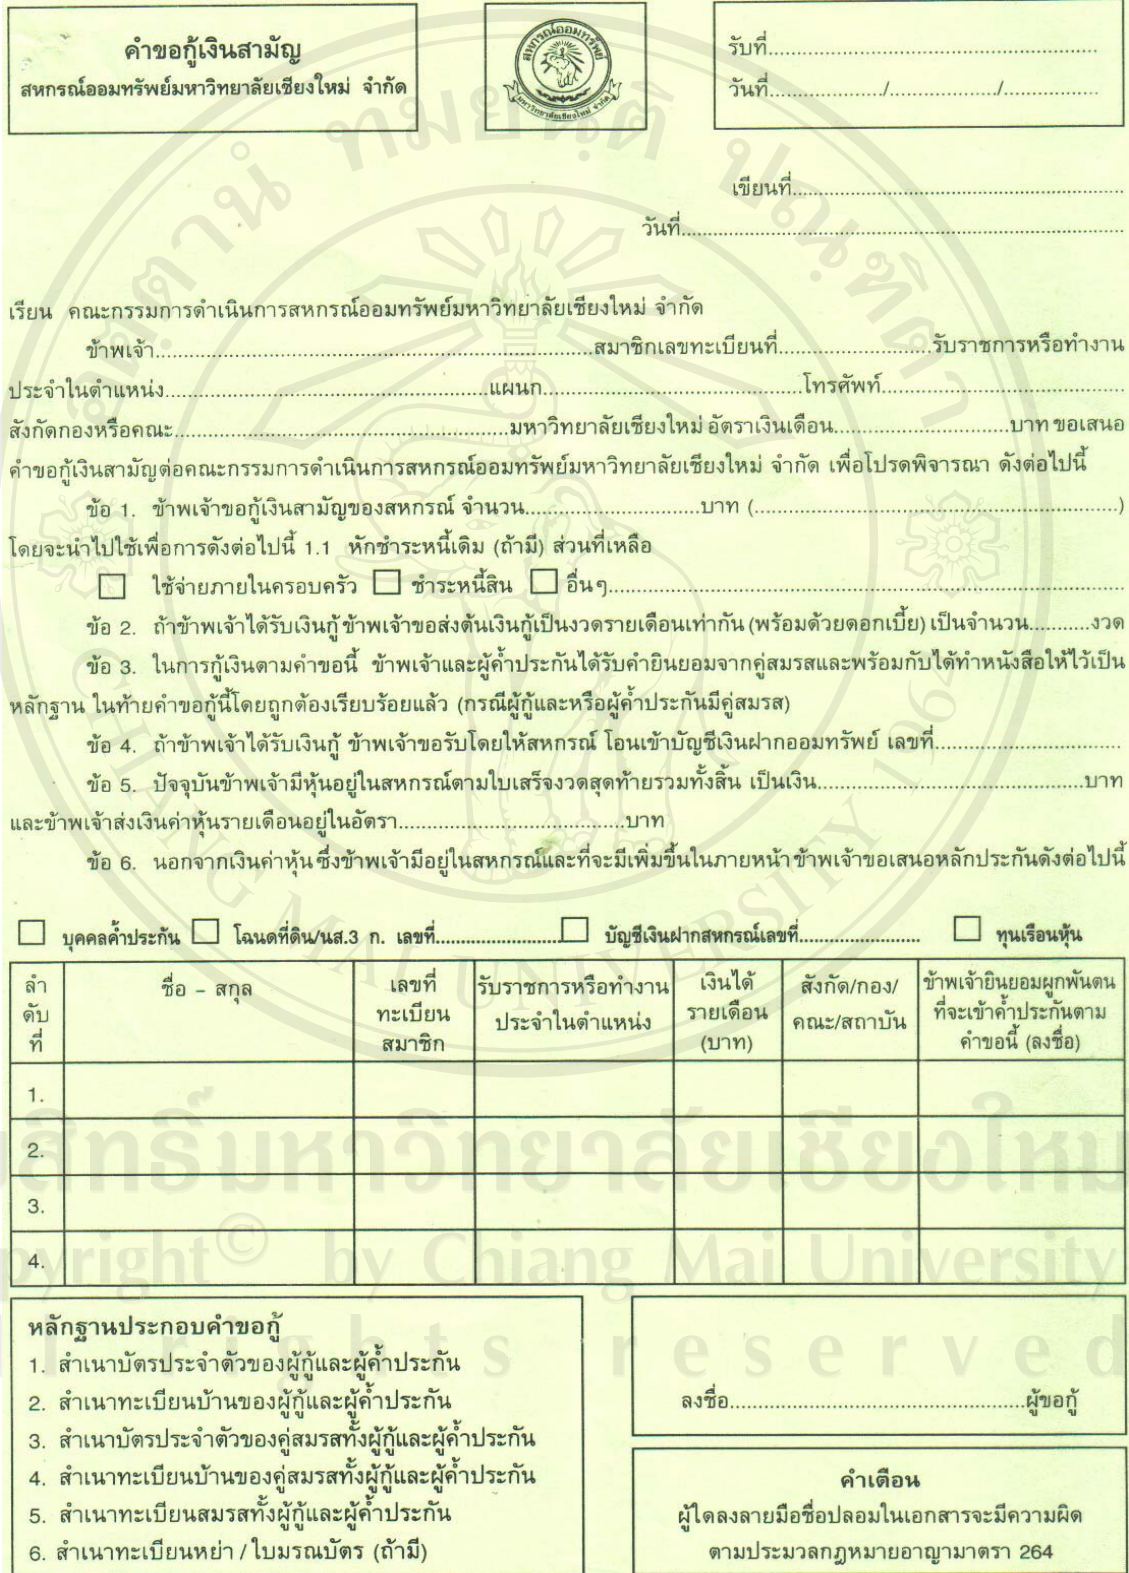 คำขอกู้เงินสามัญ
สหกรณ์ออมทรัพย์มหาวิทยาลัยเชียงใหม่ จำกัด
สหกรณ์ออมทรัพย์
มหาวิทยาลัยเชียงใหม่ จำกัด
รับที่..................................................
วันที่.................../.................../.................
เขียนที่..................................................
วันที่..................................................
เรียน คณะกรรมการดำเนินการสหกรณ์ออมทรัพย์มหาวิทยาลัยเชียงใหม่ จำกัด
ข้าพเจ้า..................................................สมาชิกเลขทะเบียนที่..........................รับราชการหรือทำงาน
ประจำในตำแหน่ง..................................................แผนก..........................................โทรศัพท์..........................................
สังกัดกองหรือคณะ..................................................มหาวิทยาลัยเชียงใหม่ อัตราเงินเดือน..............................บาท ขอเสนอ
คำขอกู้เงินสามัญต่อคณะกรรมการดำเนินการสหกรณ์ออมทรัพย์มหาวิทยาลัยเชียงใหม่ จำกัด เพื่อโปรดพิจารณา ดังต่อไปนี้
ข้อ 1. ข้าพเจ้าขอกู้เงินสามัญของสหกรณ์ จำนวน..............................บาท (..................................................)
โดยจะนำไปใช้เพื่อการดังต่อไปนี้ 1.1 หักชำระหนี้เดิม (ถ้ามี) ส่วนที่เหลือ
☐ ใช้จ่ายภายในครอบครัว ☐ ชำระหนี้สิน ☐ อื่นๆ..................................................
ข้อ 2. ถ้าข้าพเจ้าได้รับเงินกู้ ข้าพเจ้าขอส่งต้นเงินกู้เป็นงวดรายเดือนเท่ากัน (พร้อมด้วยดอกเบี้ย) เป็นจำนวน...........งวด
ข้อ 3. ในการกู้เงินตามคำขอนี้ ข้าพเจ้าและผู้ค้ำประกันได้รับคำยินยอมจากคู่สมรสและพร้อมกับได้ทำหนังสือให้ไว้เป็น
หลักฐาน ในท้ายคำขอกู้นี้โดยถูกต้องเรียบร้อยแล้ว (กรณีผู้กู้และหรือผู้ค้ำประกันมีคู่สมรส)
ข้อ 4. ถ้าข้าพเจ้าได้รับเงินกู้ ข้าพเจ้าขอรับโดยให้สหกรณ์ โอนเข้าบัญชีเงินฝากออมทรัพย์ เลขที่................................
ข้อ 5. ปัจจุบันข้าพเจ้ามีหุ้นอยู่ในสหกรณ์ตามใบเสร็จงวดสุดท้ายรวมทั้งสิ้น เป็นเงิน..............................................บาท
และข้าพเจ้าส่งเงินค่าหุ้นรายเดือนอยู่ในอัตรา.......................................บาท
ข้อ 6. นอกจากเงินค่าหุ้น ซึ่งข้าพเจ้ามีอยู่ในสหกรณ์และที่จะมีเพิ่มขึ้นในภายหน้า ข้าพเจ้าขอเสนอหลักประกันดังต่อไปนี้
☐ บุคคลค้ำประกัน ☐ โฉนดที่ดิน/นส.3 ก. เลขที่..........................☐ บัญชีเงินฝากสหกรณ์เลขที่......................... ☐ ทุนเรือนหุ้น
ลำดับที่ ชื่อ - สกุล เลขที่ทะเบียนสมาชิก รับราชการหรือทำงานประจำในตำแหน่ง เงินได้รายเดือน (บาท) สังกัด/กอง/คณะ/สถาบัน ข้าพเจ้ายินยอมผูกพันตนที่จะเข้าค้ำประกันตามคำขอนี้ (ลงชื่อ)
1.
2.
3.
4.
หลักฐานประกอบคำขอกู้
1. สำเนาบัตรประจำตัวของผู้กู้และผู้ค้ำประกัน
2. สำเนาทะเบียนบ้านของผู้กู้และผู้ค้ำประกัน
3. สำเนาบัตรประจำตัวของคู่สมรสทั้งผู้กู้และผู้ค้ำประกัน
4. สำเนาทะเบียนบ้านของคู่สมรสทั้งผู้กู้และผู้ค้ำประกัน
5. สำเนาทะเบียนสมรสทั้งผู้กู้และผู้ค้ำประกัน
6. สำเนาทะเบียนหย่า / ใบมรณบัตร (ถ้ามี)
ลงชื่อ..................................................ผู้ขอกู้
คำเตือน
ผู้ใดลงลายมือชื่อปลอมในเอกสารจะมีความผิด
ตามประมวลกฎหมายอาญามาตรา 264
สิทธิ์มหาวิทยาลัยเชียงใหม่
pyright© by Chiang Mai University
rights reserved